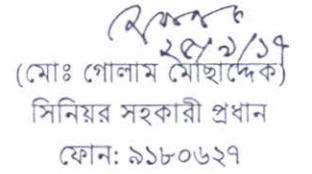 ২৫/৯/১৭
(মোঃ গোলাম মোছাদ্দেক)
সিনিয়র সহকারী প্রধান
ফোন: ৯১৮০৬২৭